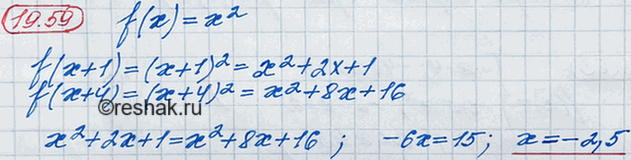 19.59
f(x) = x²
f(x+1) = (x+1)² = x²+2x+1
f(x+4) = (x+4)² = x²+8x+16
©reshak.ru
x²+2x+1=x²+8x+16 ; -6x=15; x=-2,5